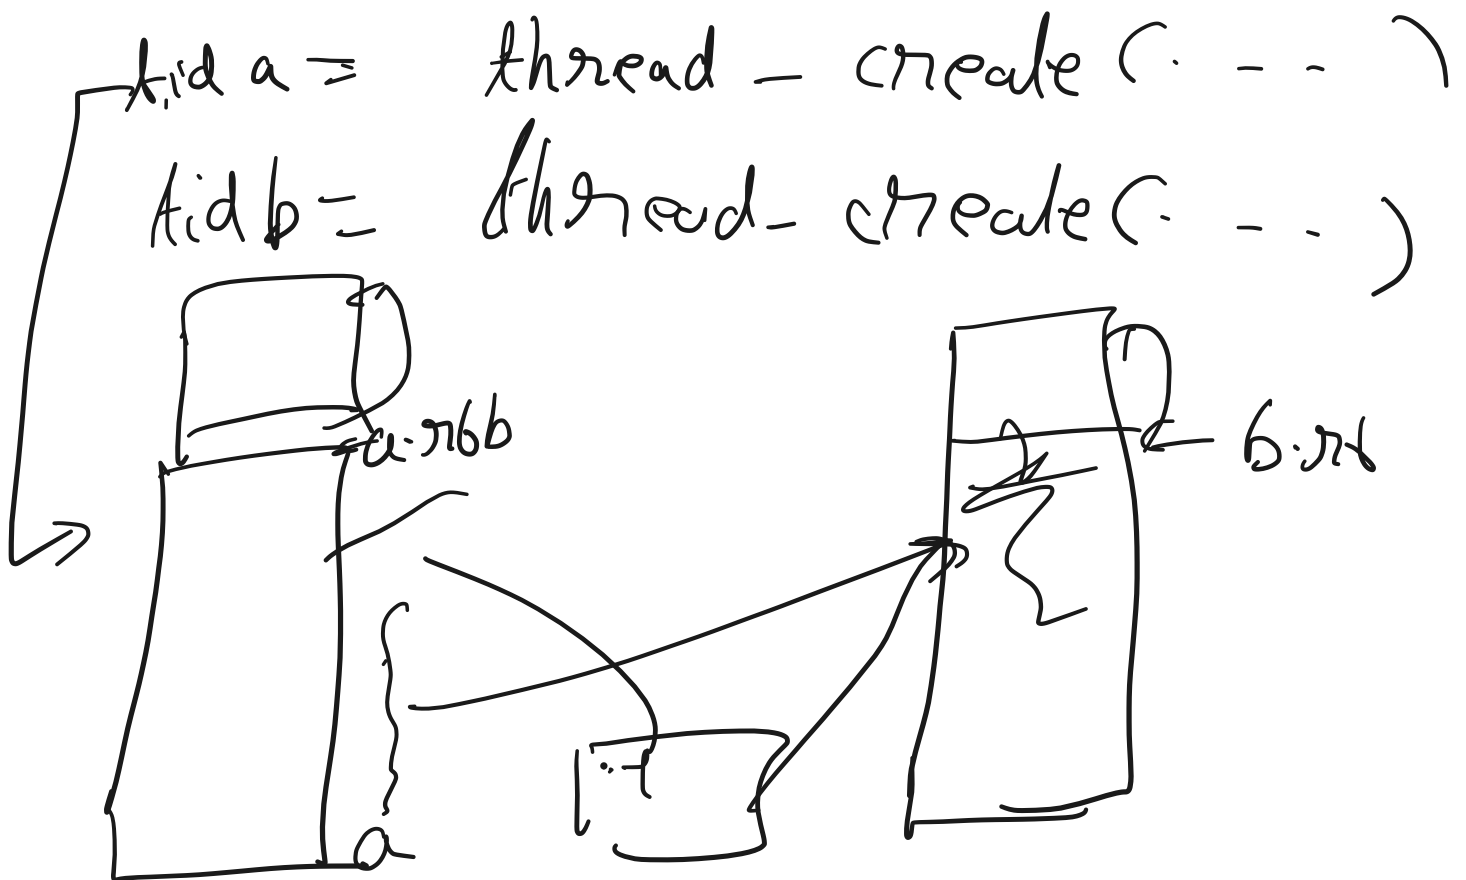 tid a = thread_create(. - -)
tid b = thread_create(. - -)
a